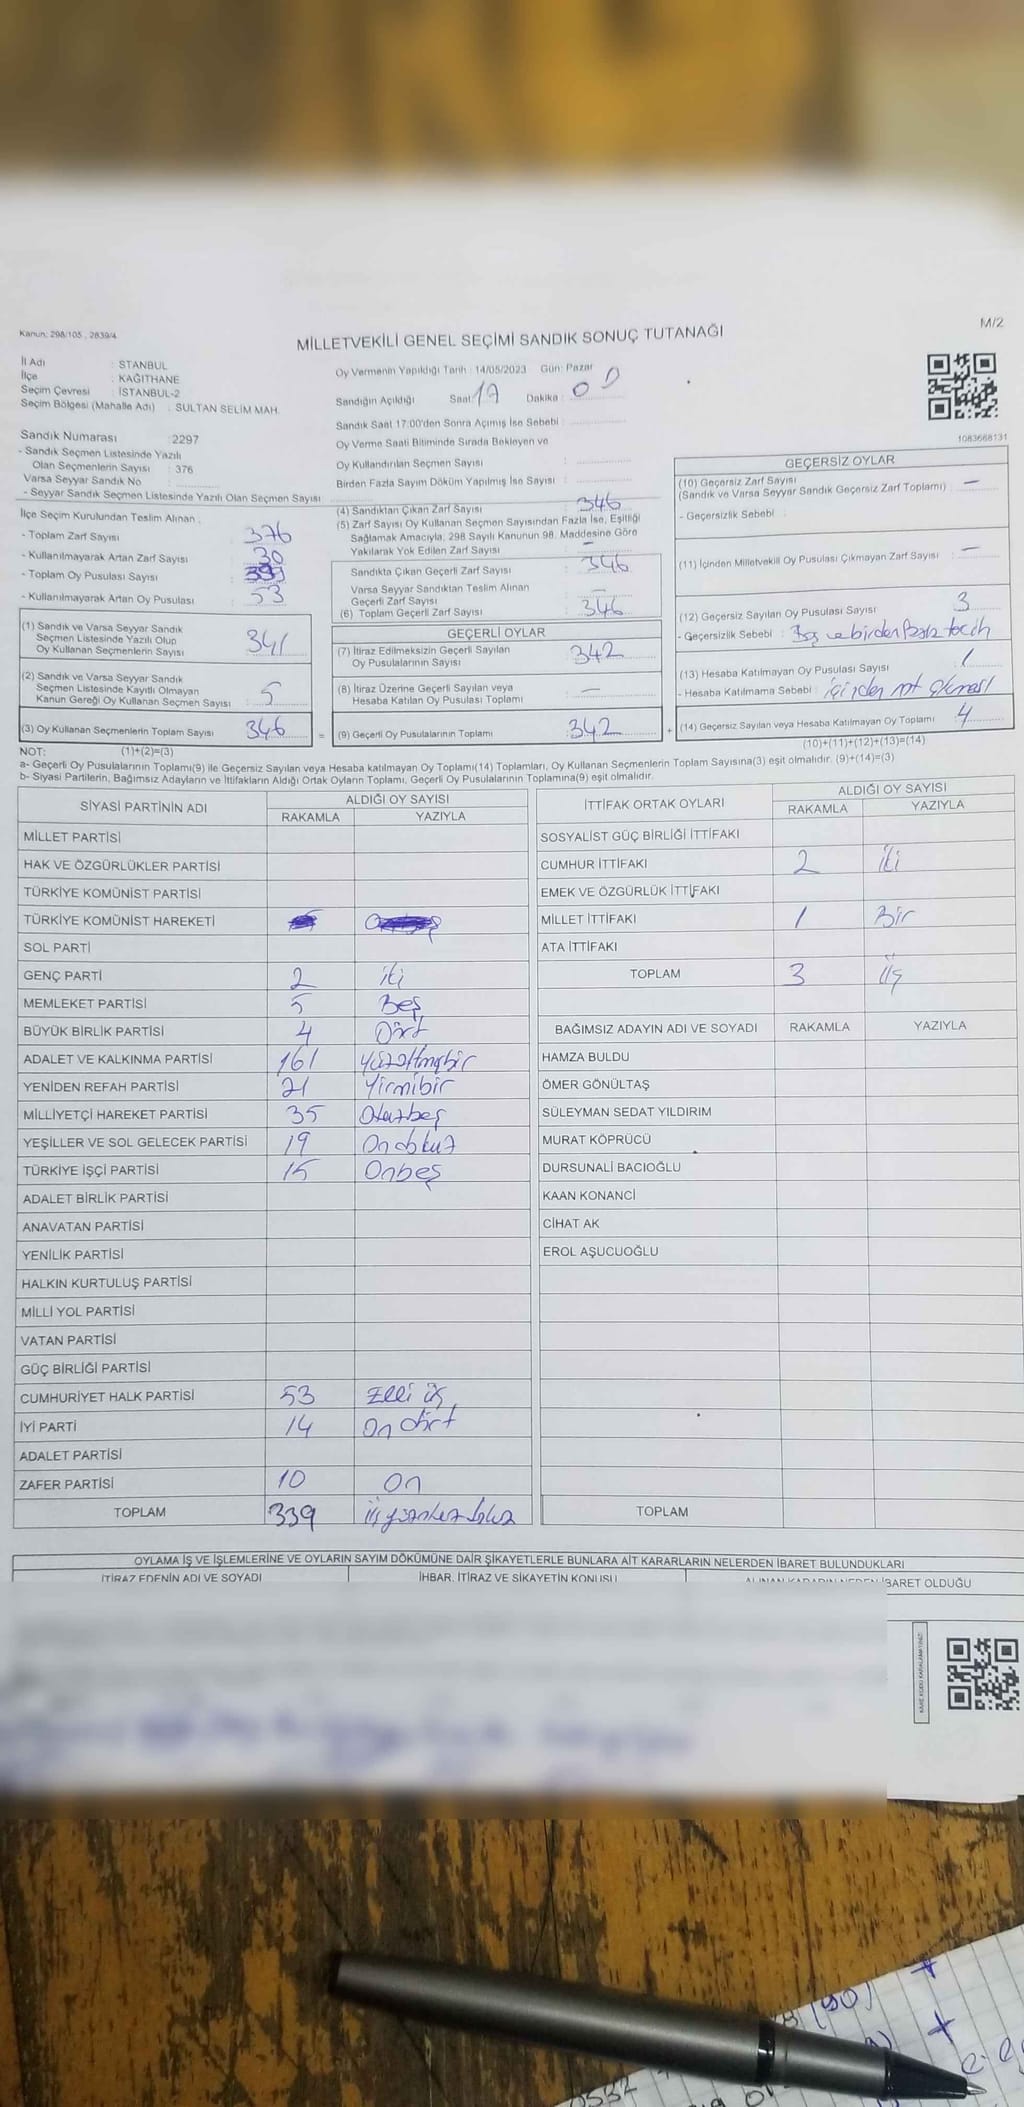 Kanun: 298/105 , 2839/4
M/2
MİLLETVEKİLİ GENEL SEÇİMİ SANDIK SONUÇ TUTANAĞI
İl Adı : STANBUL
İlçe : KAĞITHANE
Seçim Çevresi : İSTANBUL-2
Seçim Bölgesi (Mahalle Adı) : SULTAN SELİM MAH.
Sandık Numarası :2297
- Sandık Seçmen Listesinde Yazılı
Olan Seçmenlerin Sayısı : 376
Varsa Seyyar Sandık No :
- Seyyar Sandık Seçmen Listesinde Yazılı Olan Seçmen Sayısı :
Oy Vermenin Yapıldığı Tarih : 14/05/2023 Gün: Pazar
Sandığın Açıldığı Saat: 17 Dakika : 00
Sandık Saat 17:00'den Sonra Açımış İse Sebebi :
Oy Verme Saati Bitiminde Sırada Bekleyen ve
Oy Kullandırılan Seçmen Sayısı :
Birden Fazla Sayım Döküm Yapılmış İse Sayısı :
1083668131
İlçe Seçim Kurulundan Teslim Alınan :
- Toplam Zarf Sayısı : 376
- Kullanılmayarak Artan Zarf Sayısı : 30
- Toplam Oy Pusulası Sayısı :
- Kullanılmayarak Artan Oy Pusulası : 53
(1) Sandık ve Varsa Seyyar Sandık
Seçmen Listesinde Yazılı Olup
Oy Kullanan Seçmenlerin Sayısı : 341
(2) Sandık ve Varsa Seyyar Sandık
Seçmen Listesinde Kayıtlı Olmayan
Kanun Gereği Oy Kullanan Seçmen Sayısı : 5
(3) Oy Kullanan Seçmenlerin Toplam Sayısı : 346
(4) Sandıktan Çıkan Zarf Sayısı : 346
(5) Zarf Sayısı Oy Kullanan Seçmen Sayısından Fazla İse, Eşitliği
Sağlamak Amacıyla; 298 Sayılı Kanunun 98. Maddesine Göre
Yakılarak Yok Edilen Zarf Sayısı : -
Sandıkta Çıkan Geçerli Zarf Sayısı : 346
Varsa Seyyar Sandıktan Teslim Alınan
Geçerli Zarf Sayısı : -
(6) Toplam Geçerli Zarf Sayısı : 346
GEÇERLİ OYLAR
(7) İtiraz Edilmeksizin Geçerli Sayılan
Oy Pusulalarının Sayısı : 342
(8) İtiraz Üzerine Geçerli Sayılan veya
Hesaba Katılan Oy Pusulası Toplamı : -
= (9) Geçerli Oy Pusulalarının Toplamı : 342 +
GEÇERSİZ OYLAR
(10) Geçersiz Zarf Sayısı
(Sandık ve Varsa Seyyar Sandık Geçersiz Zarf Toplamı) : -
- Geçersizlik Sebebi :
(11) İçinden Milletvekili Oy Pusulası Çıkmayan Zarf Sayısı : -
(12) Geçersiz Sayılan Oy Pusulası Sayısı : 3
- Geçersizlik Sebebi : Boş ve birden fazla tercih
(13) Hesaba Katılmayan Oy Pusulası Sayısı : 1
- Hesaba Katılmama Sebebi : içinden not çıkması
(14) Geçersiz Sayılan veya Hesaba Katılmayan Oy Toplamı : 4
NOT: (1)+(2)=(3)
(10)+(11)+(12)+(13)=(14)
a- Geçerli Oy Pusulalarının Toplamı(9) ile Geçersiz Sayılan veya Hesaba katılmayan Oy Toplamı(14) Toplamları, Oy Kullanan Seçmenlerin Toplam Sayısına(3) eşit olmalıdır. (9)+(14)=(3)
b- Siyasi Partilerin, Bağımsız Adayların ve İttifakların Aldığı Ortak Oyların Toplamı, Geçerli Oy Pusulalarının Toplamına(9) eşit olmalıdır.
SİYASİ PARTİNİN ADI ALDIĞI OY SAYISI
RAKAMLA YAZIYLA
MİLLET PARTİSİ
HAK VE ÖZGÜRLÜKLER PARTİSİ
TÜRKİYE KOMÜNİST PARTİSİ
TÜRKİYE KOMÜNİST HAREKETİ
SOL PARTİ
GENÇ PARTİ 2 iki
MEMLEKET PARTİSİ 5 Beş
BÜYÜK BİRLİK PARTİSİ 4 Dört
ADALET VE KALKINMA PARTİSİ 161 Yüzaltmışbir
YENİDEN REFAH PARTİSİ 21 Yirmibir
MİLLİYETÇİ HAREKET PARTİSİ 35 Otuzbeş
YEŞİLLER VE SOL GELECEK PARTİSİ 19 Ondokuz
TÜRKİYE İŞÇİ PARTİSİ 15 Onbeş
ADALET BİRLİK PARTİSİ
ANAVATAN PARTİSİ
YENİLİK PARTİSİ
HALKIN KURTULUŞ PARTİSİ
MİLLİ YOL PARTİSİ
VATAN PARTİSİ
GÜÇ BİRLİĞİ PARTİSİ
CUMHURİYET HALK PARTİSİ 53 Elli üç
İYİ PARTİ 14 On dört
ADALET PARTİSİ
ZAFER PARTİSİ 10 On
TOPLAM 339 üçyüzotuzdokuz
İTTİFAK ORTAK OYLARI ALDIĞI OY SAYISI
RAKAMLA YAZIYLA
SOSYALİST GÜÇ BİRLİĞİ İTTİFAKI
CUMHUR İTTİFAKI 2 iki
EMEK VE ÖZGÜRLÜK İTTİFAKI
MİLLET İTTİFAKI 1 Bir
ATA İTTİFAKI
TOPLAM 3 üç
BAĞIMSIZ ADAYIN ADI VE SOYADI RAKAMLA YAZIYLA
HAMZA BULDU
ÖMER GÖNÜLTAŞ
SÜLEYMAN SEDAT YILDIRIM
MURAT KÖPRÜCÜ
DURSUNALİ BACIOĞLU
KAAN KONANCİ
CİHAT AK
EROL AŞUCUOĞLU
TOPLAM
OYLAMA İŞ VE İŞLEMLERİNE VE OYLARIN SAYIM DÖKÜMÜNE DAİR ŞİKAYETLERLE BUNLARA AİT KARARLARIN NELERDEN İBARET BULUNDUKLARI
İTİRAZ EDENİN ADI VE SOYADI İHBAR, İTİRAZ VE ŞİKAYETİN KONUSU ALINAN KARARIN NEDEN İBARET OLDUĞU